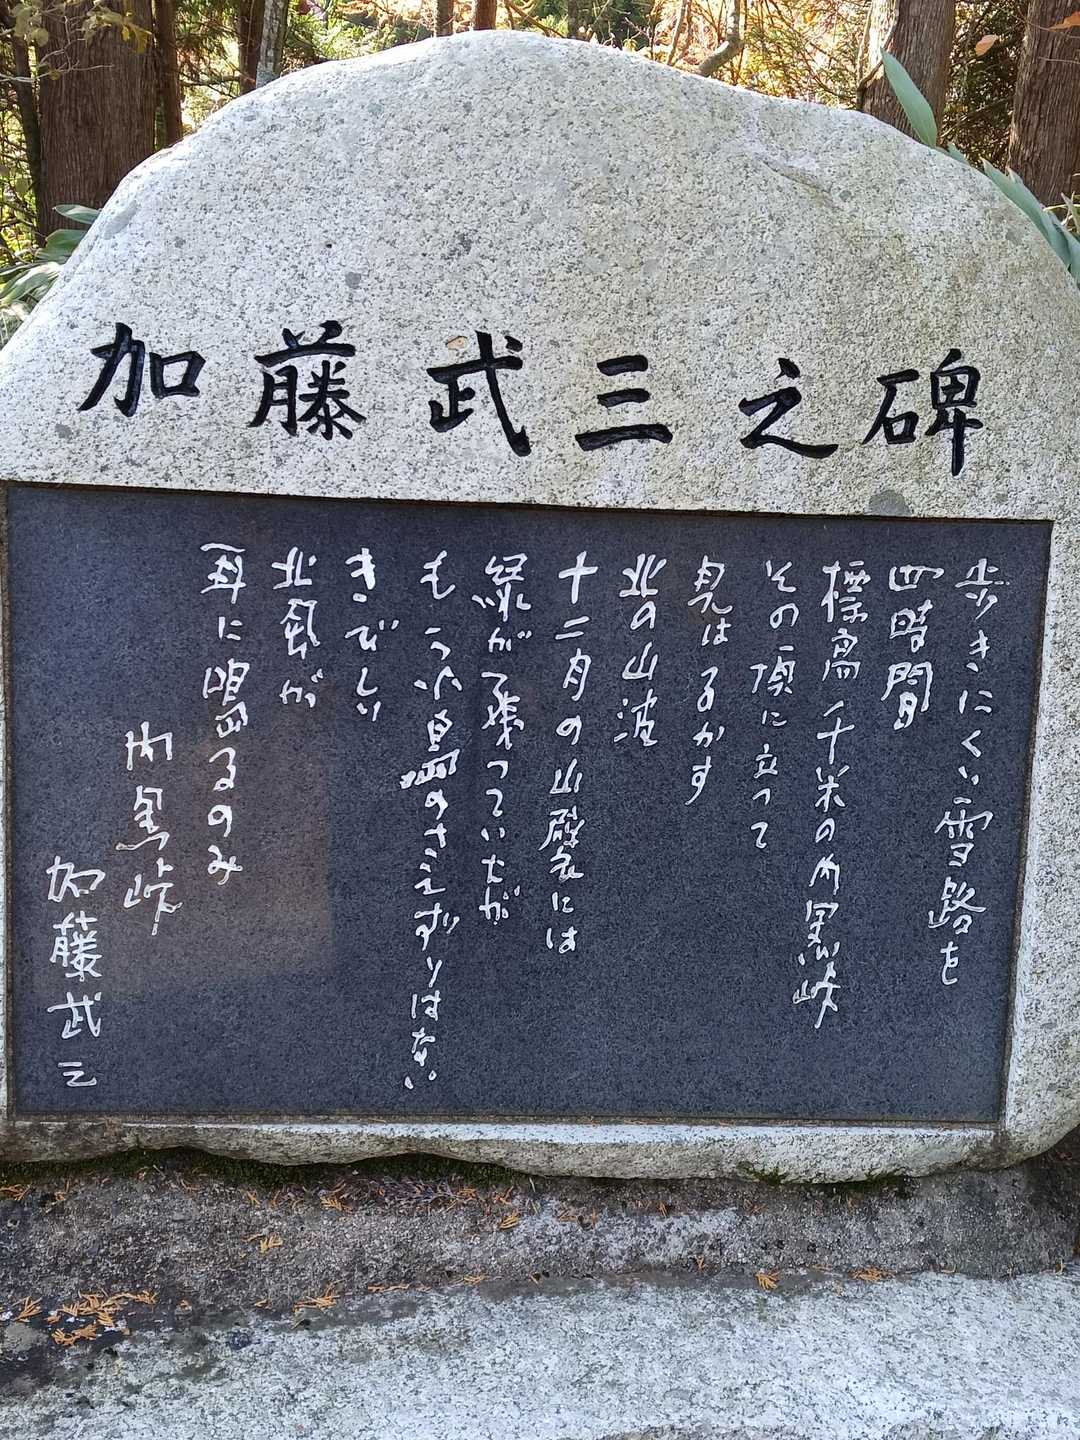 加藤武三之碑
歩きにくい雪路を
四時間
標高千米の内黒峠
その頂に立って
見はるかす
北の山波
十二月の山襞には
緑が残っていたが
もう小鳥のさえずりはない
きびしい
北風が
耳に鳴るのみ
内黒峠
加藤武三